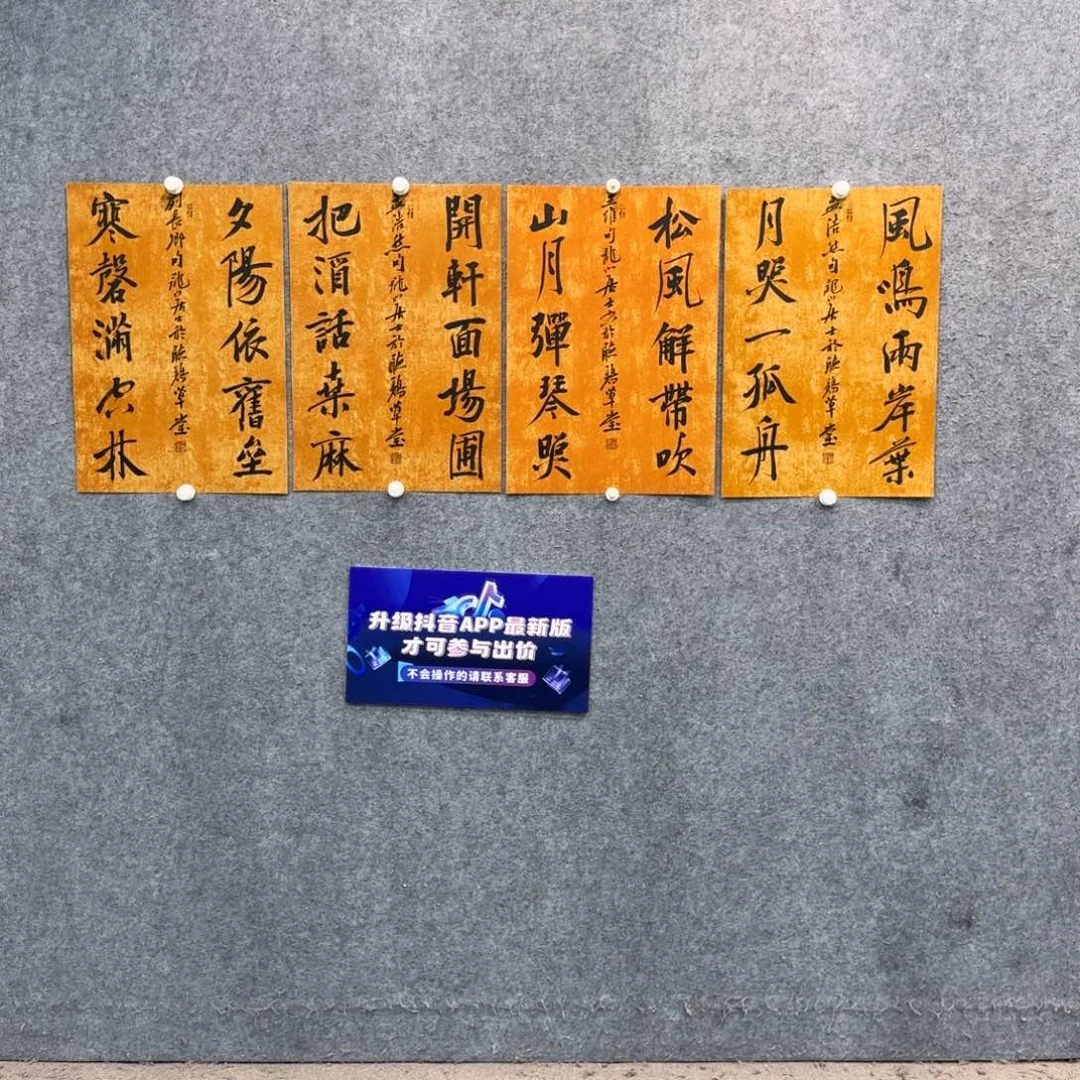 風鳴兩岸葉
月照一孤舟
孟浩然句龍山居士於草堂
松風解帶吹
山月彈琴照
王維句龍山居士書於草堂
開軒面場圃
把酒話桑麻
孟浩然句龍山居士於草堂
夕陽依舊壘
寒磬滿空林
劉長卿句龍山居士於草堂
升级抖音APP最新版
才可参与出价
不会操作的请联系客服